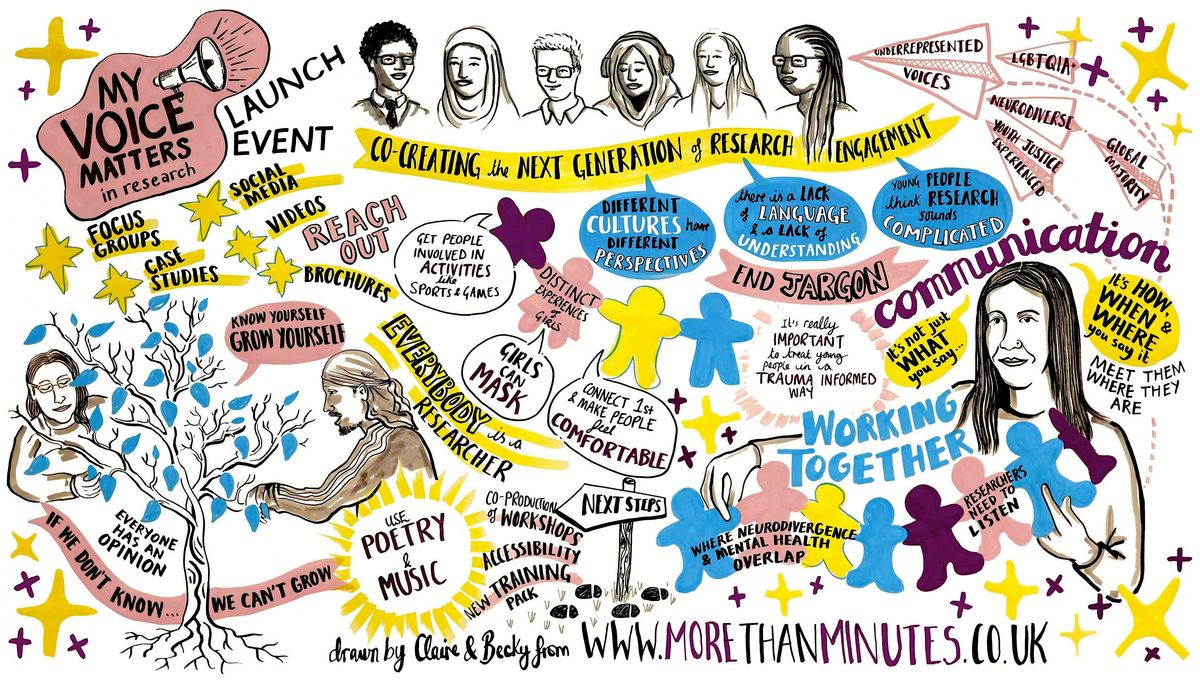 MY
VOICE
MATTERS
in research
LAUNCH
EVENT
CO-CREATING the NEXT GENERATION of RESEARCH ENGAGEMENT
UNDERREPRESENTED
VOICES
LGBTQIA+
NEURODIVERSE
YOUTH JUSTICE
EXPERIENCED
GLOBAL
MATURITY
SOCIAL
MEDIA
VIDEOS
FOCUS
GROUPS
CASE
STUDIES
BROCHURES
REACH
OUT
GET PEOPLE
INVOLVED IN
ACTIVITIES
like
SPORTS & GAMES
DIFFERENT
CULTURES have
DIFFERENT
PERSPECTIVES
there is a LACK
of LANGUAGE
& a LACK of
UNDERSTANDING
YOUNG PEOPLE
think RESEARCH
sounds
COMPLICATED
END JARGON
communication
DISTINCT
EXPERIENCES
of
GIRLS
GIRLS
CAN
MASK
CONNECT 1st
& MAKE PEOPLE
feel
COMFORTABLE
It's really
IMPORTANT
to treat young
people in a
TRAUMA INFORMED
WAY
It's not just
WHAT
you say...
It's HOW,
WHEN &
WHERE
you say it
MEET THEM
WHERE THEY
ARE
KNOW YOURSELF
GROW YOURSELF
EVERYBODY is a
RESEARCHER
EVERYONE
HAS AN
OPINION
IF WE DON'T KNOW...
WE CAN'T GROW
USE
POETRY
&
MUSIC
NEXT STEPS
CO-PRODUCTION
of WORKSHOPS
ACCESSIBILITY
NEW TRAINING
PACK
WORKING
TOGETHER
WHERE NEURODIVERGENCE
& MENTAL HEALTH
OVERLAP
RESEARCHERS
NEED TO
LISTEN
drawn by Claire & Becky from WWW.MORETHANMINUTES.CO.UK